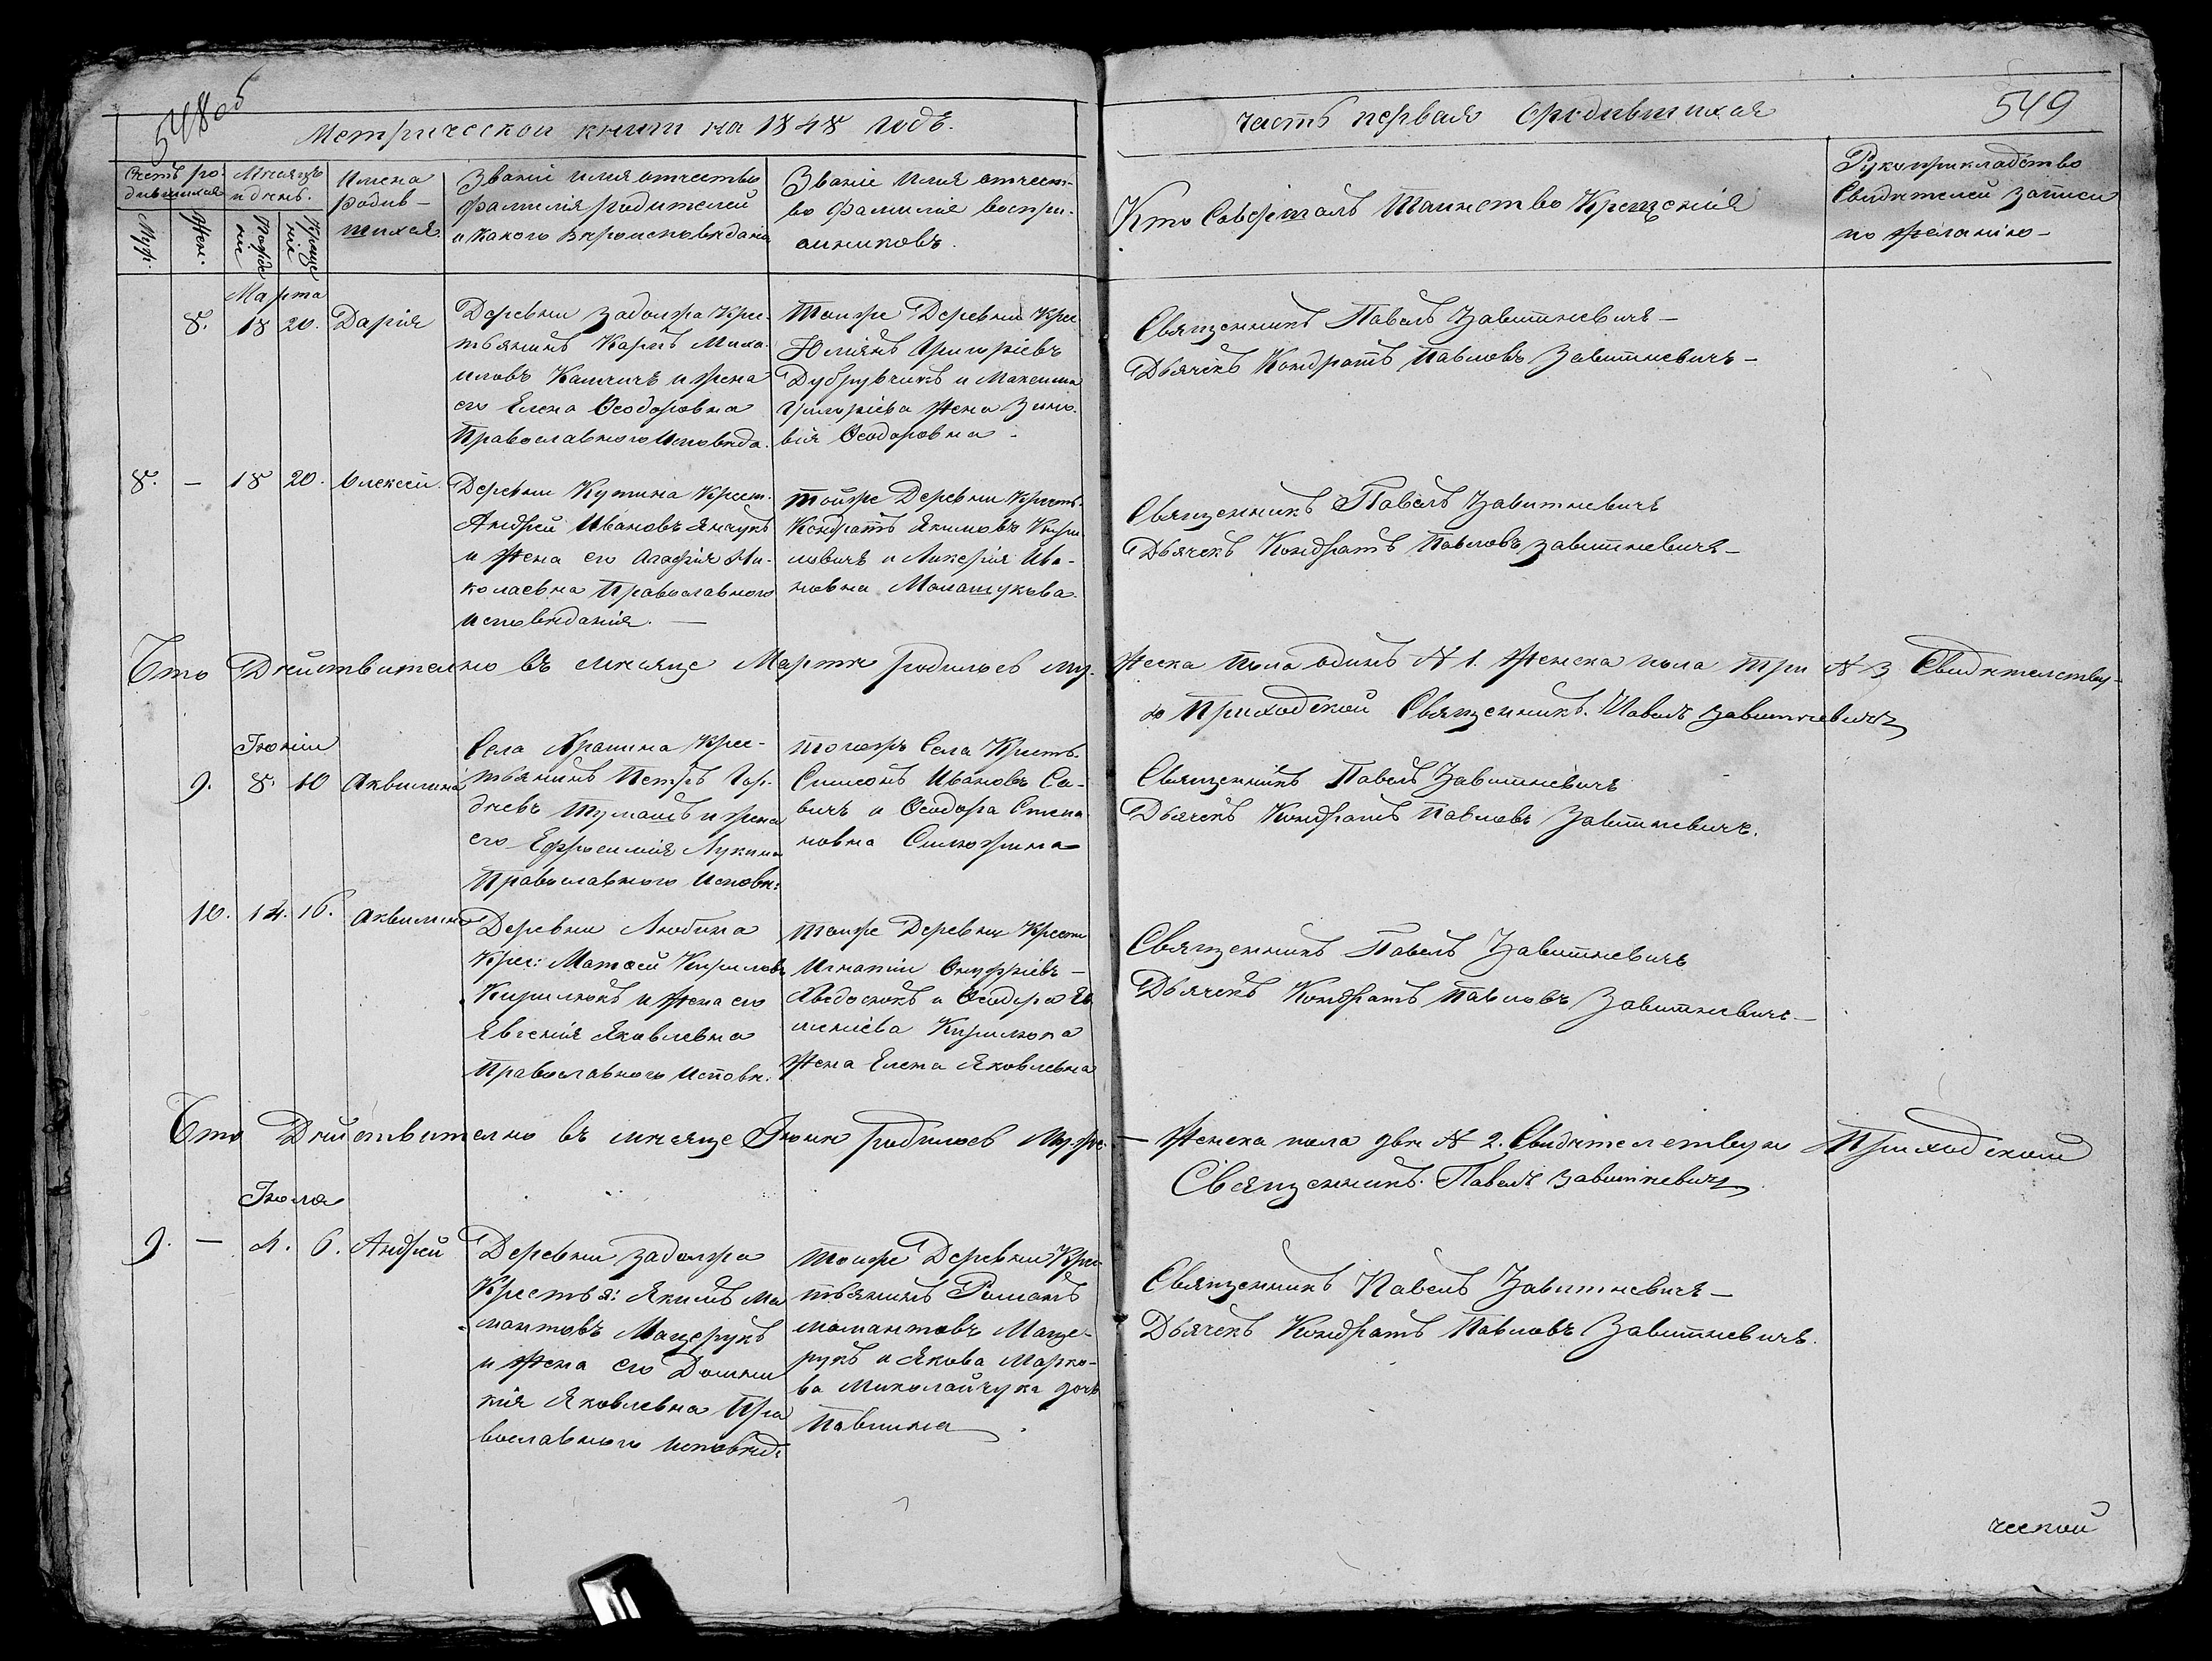 548 об
Метрической книги на 1848 годъ.
часть первая о родившихся
549
Счетъ ро-
дившихся
Муж.
Жен.
Месяцъ
и день.
Рожде
нія
Креще
нія
Имена
родив-
шихся
Званіе имя отчество
фамилія родителей
и какого вѣроисповѣданія
Званіе имя отчест-
во фамилія воспри-
емниковъ.
Кто совершалъ таинство Крещенія
Рукоприкладство
Свидѣтелей записи
по желанію –
Марта
8. 18 20. Дарія
Деревни Задолжа Крес-
тьянинъ Карпъ Миха-
иловъ и жена
его Елена Ѳеодоровна
Православного Исповѣда.
Тоиже Деревни Крес
Юліянъ Григоріевъ
и Максима
Григоріева жена Зино-
вія Ѳеодоровна –
Священникъ Павелъ Завитневичъ –
Дьячекъ Кондратъ Павловъ Завитневичъ –
8. – 18 20. Алексей.
Деревни Кутина Крест.
Андрей Ивановъ
и жена его Агафія Ни-
колаевна Православного
исповѣданія. –
Тойже Деревни Кресть.
Кондратъ Якимовъ Кири
ловичъ и Ликерія Ива-
новна
Священникъ Павелъ Завитневичъ
Дьячекъ Кондратъ Павловъ Завитневичъ –
Что Дѣйствително въ месяце Мартѣ родилось муж-
жеска пола одинъ № 1. женска пола три № 3 Свидѣтелству-
ю Приходской Священникъ. Павелъ Завитневичъ
Іюнія
9. 8. 10 Аквилина
Села Храпина Крес-
тьянинъ Петръ Гор-
дѣевъ и жена
его Ефросинія Лукина
Православного Исповѣ:
тогожъ Села Кресть.
Симеонъ Ивановъ Са-
вичъ и Ѳеодора Степа
новна
Священникъ Павелъ Завитневичъ
Дьячекъ Кондратъ Павловъ Завитневичъ.
10. 14. 16. Аквилина
Деревни Любина
Крес: Матѳей Кириловъ
Кирилюкъ и жена его
Явгенія Яковлевна
Православного Исповѣ.
Тоиже Деревни Крест
Игнатій Онуфріевъ –
и Ѳеодора
Кирилюка
жена Елена Яковлевна
Священникъ Павелъ Завитневичъ
Дьячекъ Кондратъ Павловъ Завитневичъ –
Что Дѣйствително въ месяце Іюнѣ родилось Муж:
– женска пола двѣ № 2. Свидѣтелствую Приходской
Священникъ. Павелъ Завитневичъ
Іюля
9. – 4. 6. Андрей
Деревни Задолжа
Крестья: Якимъ Ма
мантовъ Мацерукъ
и жена его Домни
кія Яковлевна Пра
вославного исповѣд:
тоиже Деревни Крес
тьянинъ Романъ
Мамантовъ Маце-
рукъ и Якова Марко-
ва Миколайчука дочь
Павлина
Священникъ Павелъ Завитневичъ –
Дьячекъ Кондратъ Павловъ Завитневичъ.
ческой